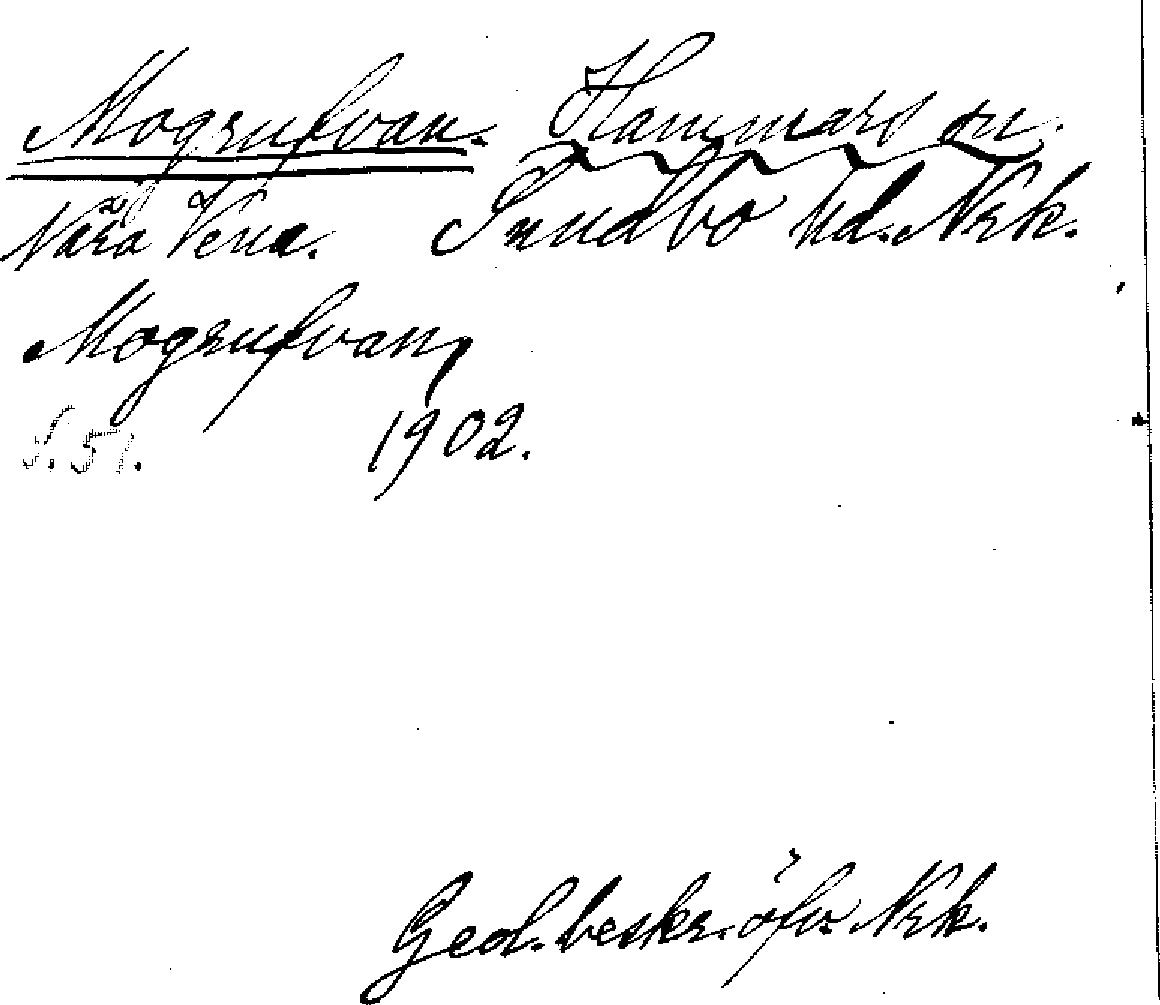 Mogrufvan. Hammars sn.
Nära Vena. Sundbo hd. Nrk.
Mogrufvan,
S. 51. 1902.
Geol. beskr. öfv. Nrk.